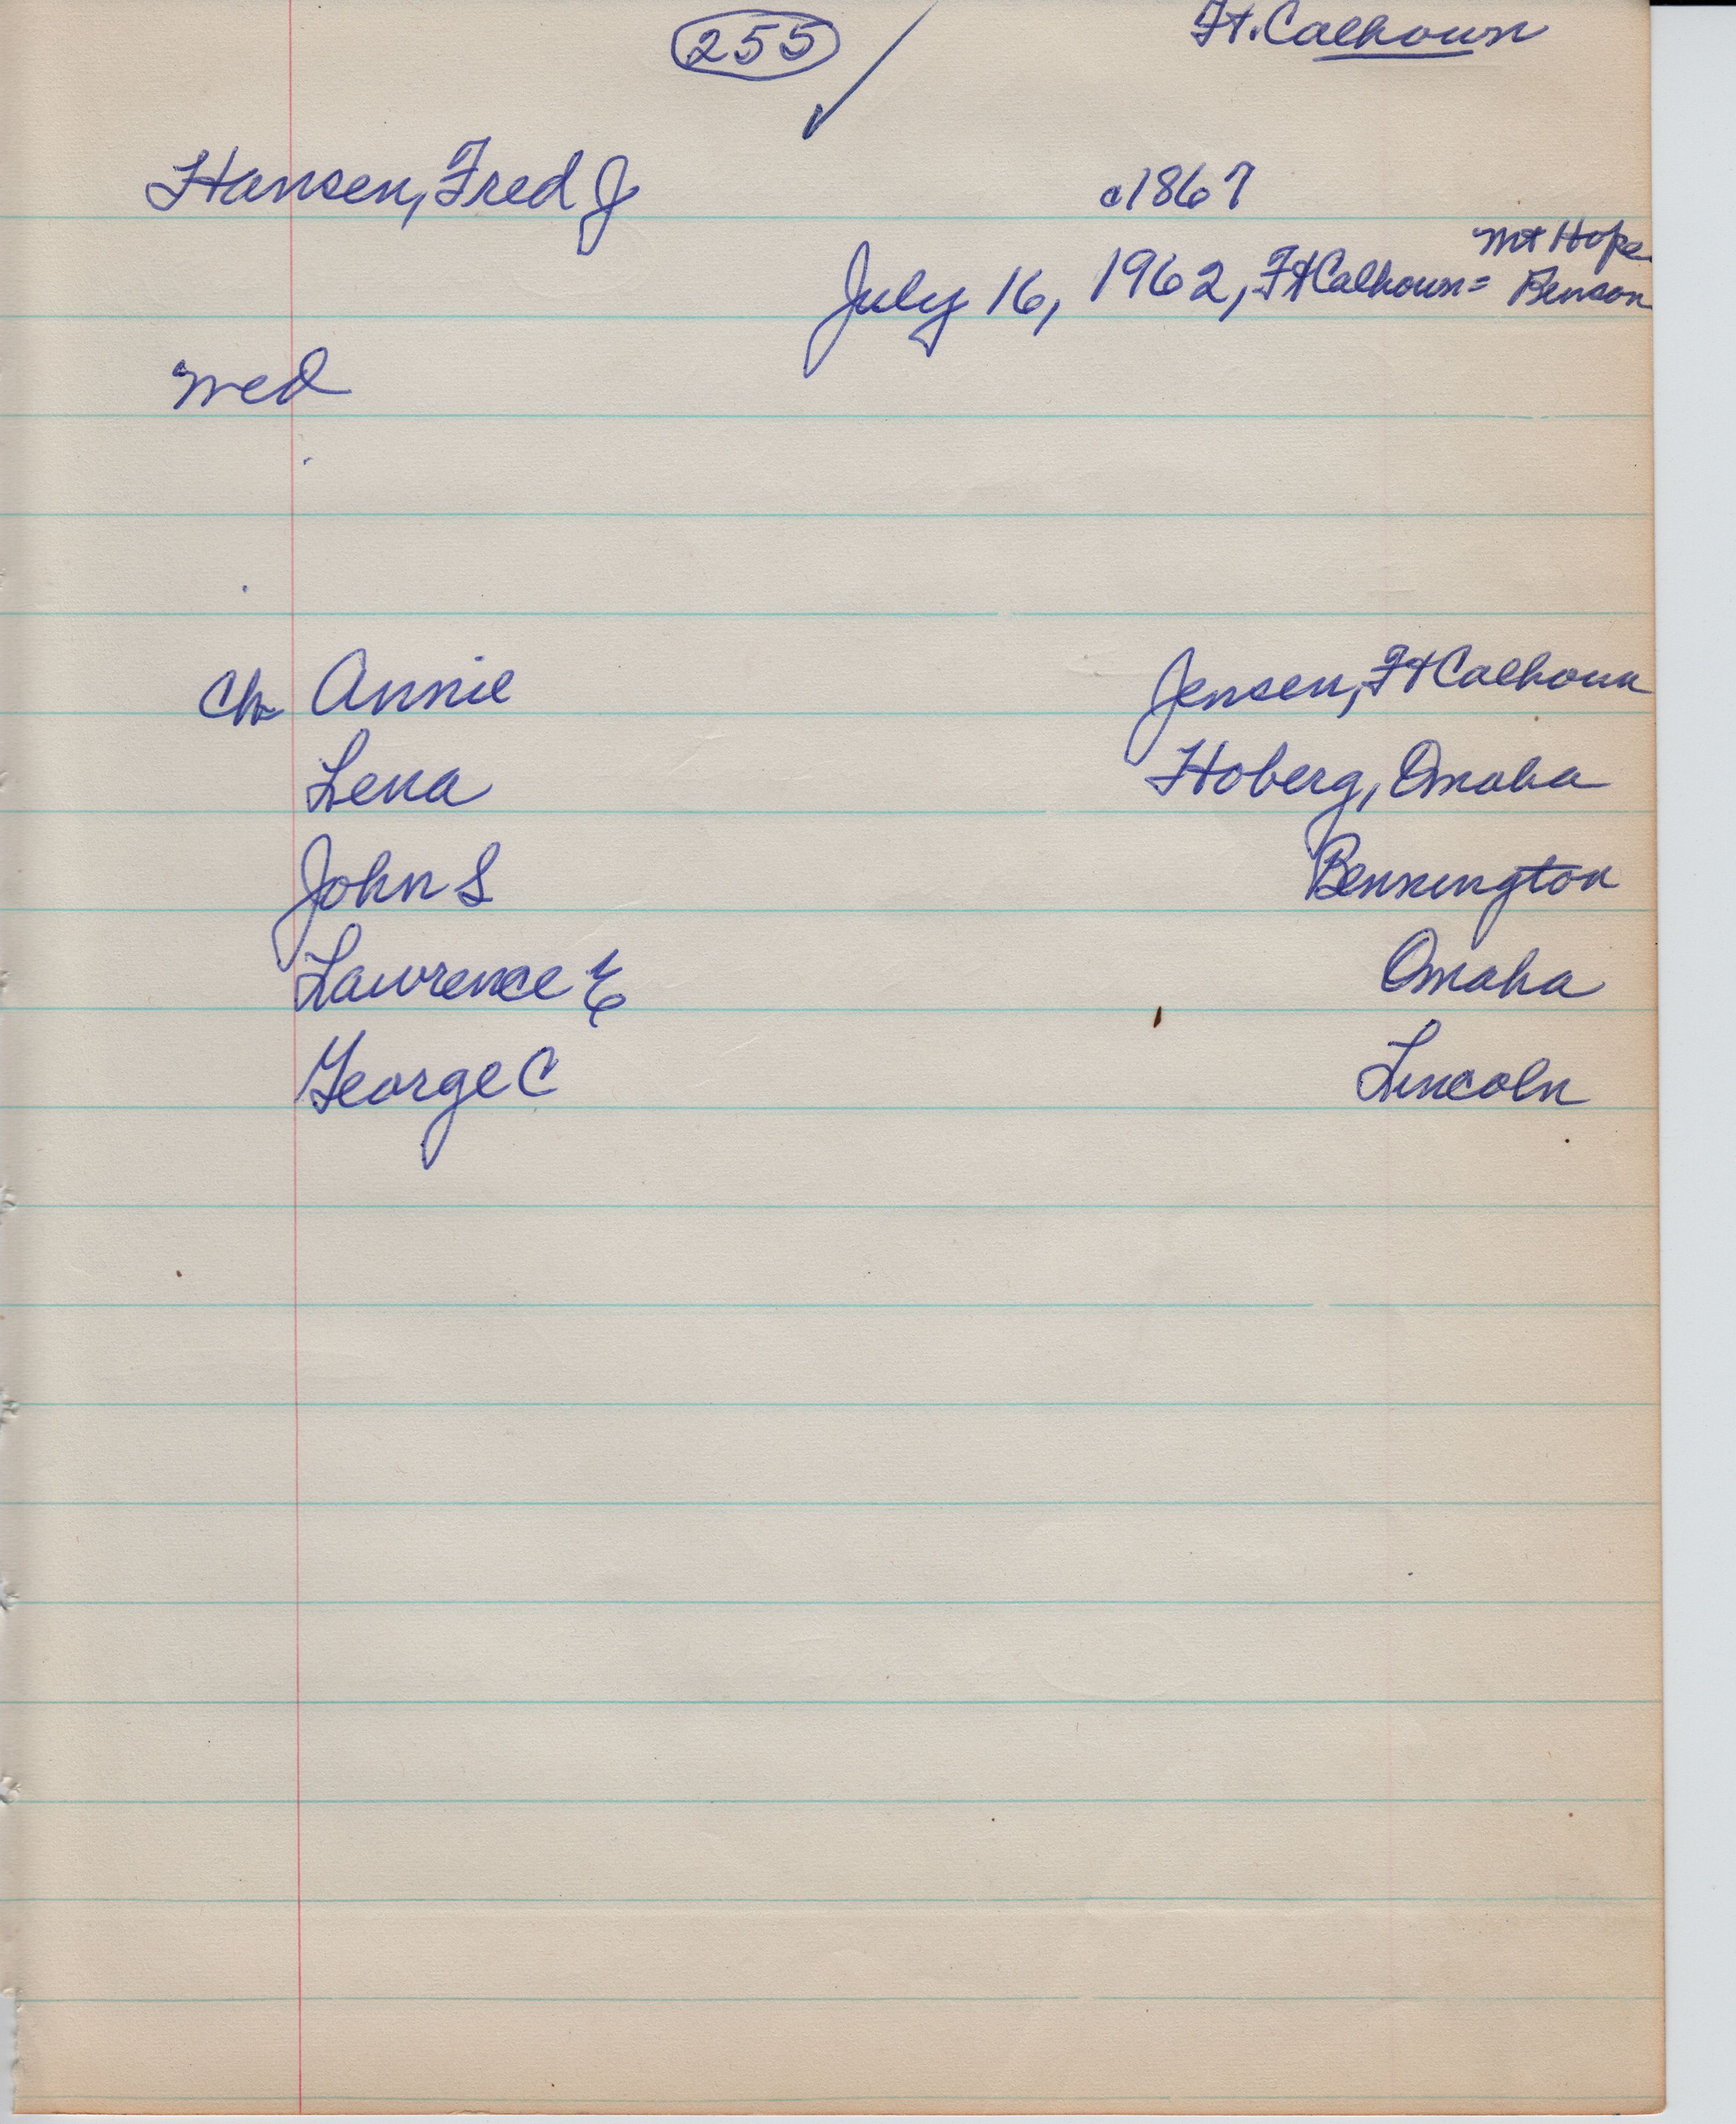 255 ✓ Ft. Calhoun
Hansen, Fred J c1867
Mt Hope
July 16, 1962, Ft Calhoun = Benson
med
Ch Annie Jensen, Ft Calhoun
Lena Hoberg, Omaha
John S Bennington
Lawrence E Omaha
George C Lincoln